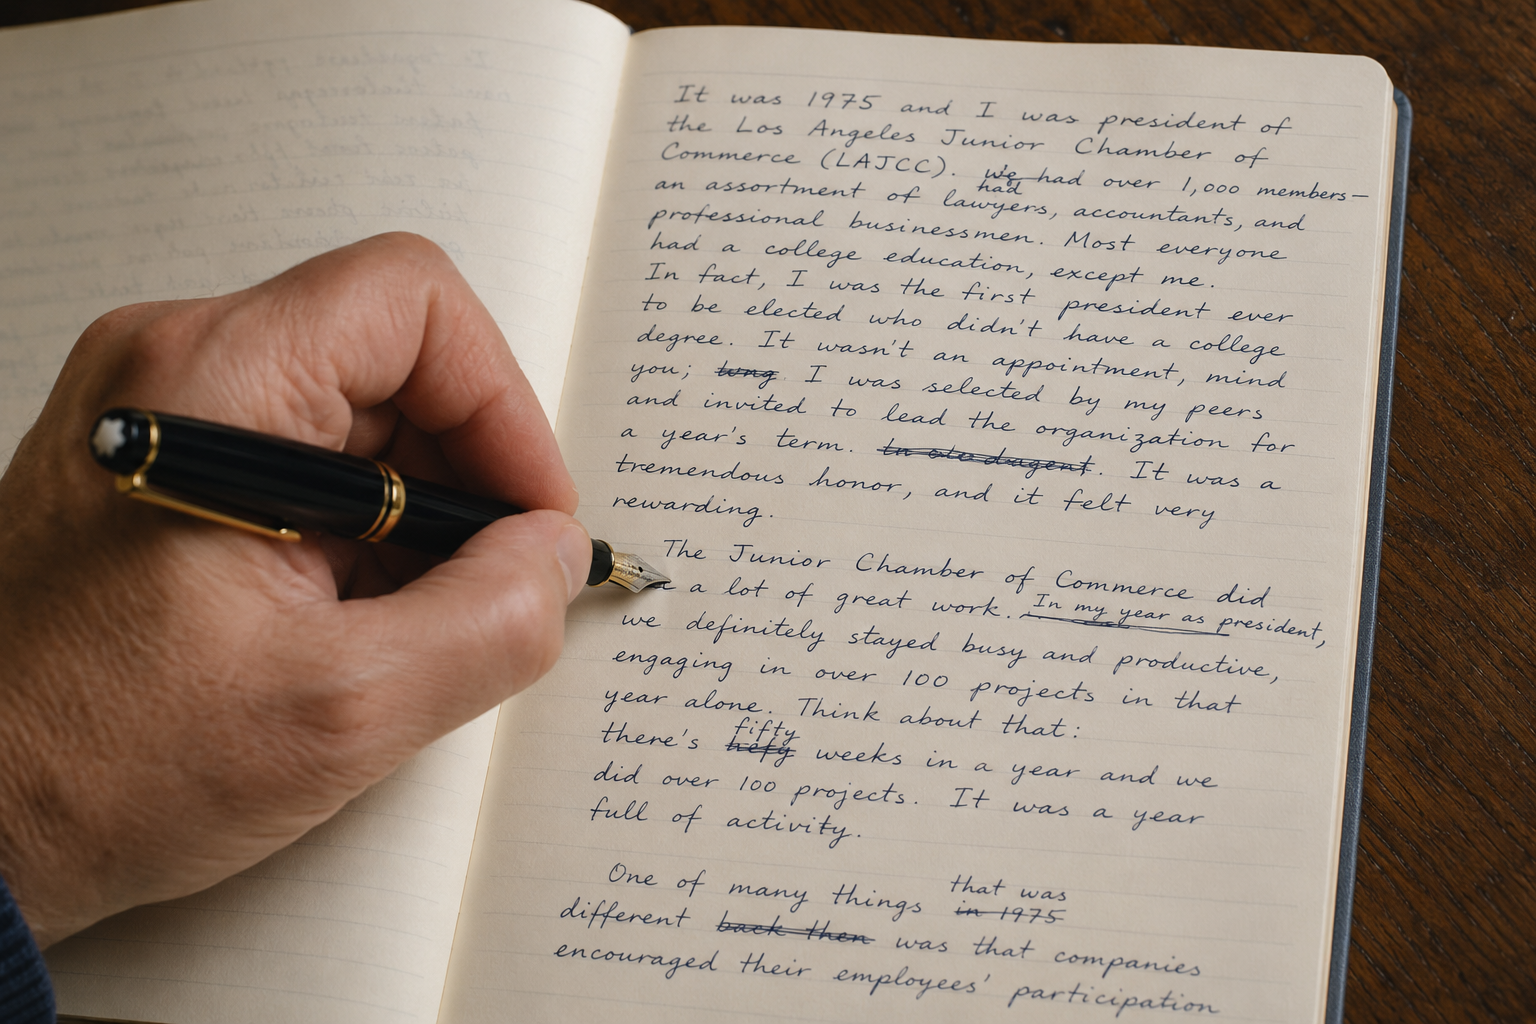 It was 1975 and I was president of
the Los Angeles Junior Chamber of
Commerce (LAJCC). we had over 1,000 members—
had
an assortment of lawyers, accountants, and
professional businessmen. Most everyone
had a college education, except me.
In fact, I was the first president ever
to be elected who didn't have a college
degree. It wasn't an appointment, mind
you; I was selected by my peers
and invited to lead the organization for
a year's term. . It was a
tremendous honor, and it felt very
rewarding.
The Junior Chamber of Commerce did
a lot of great work. In my year as president,
we definitely stayed busy and productive,
engaging in over 100 projects in that
year alone. Think about that:
fifty
there's weeks in a year and we
did over 100 projects. It was a year
full of activity.
that was
One of many things in 1975
different back then was that companies
encouraged their employees' participation